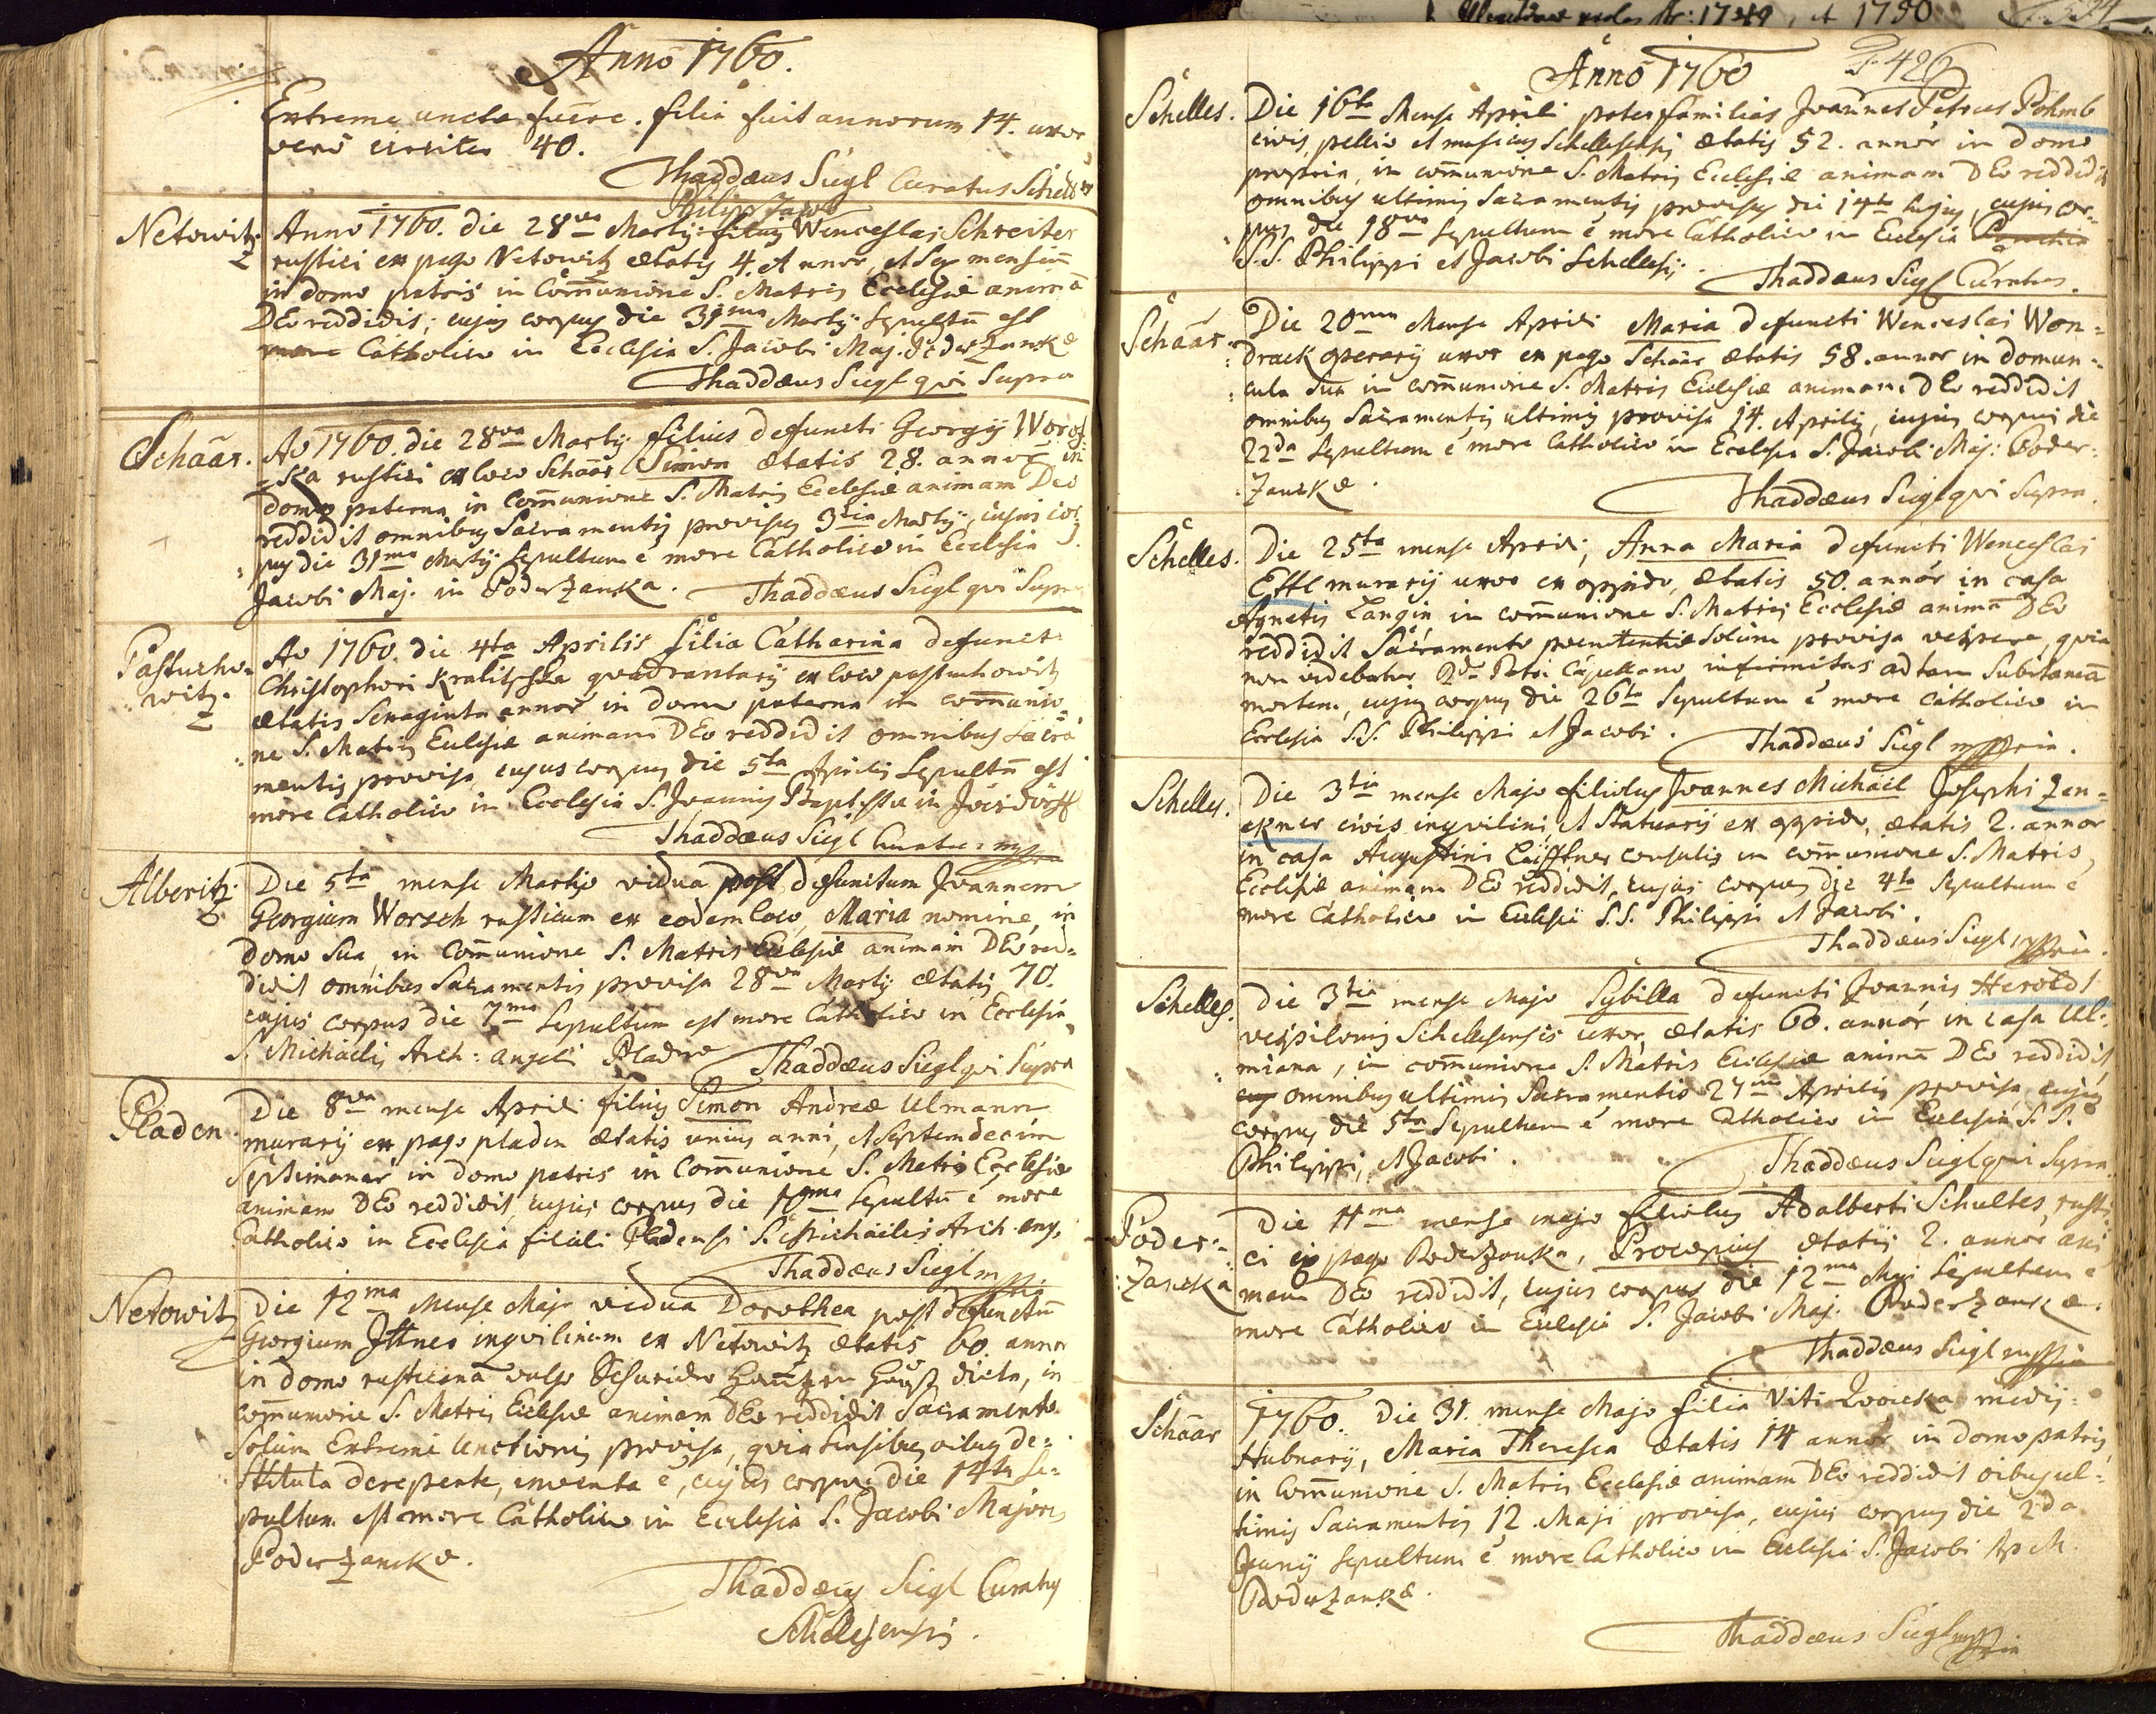 Anno 1760.
Extreme uncta fuere. filia fuit annorum 14. uxor
vero circiter 40.
Thaddæus Siegl Curatus Schelles
Philipp Jacob
Netowitz. Anno 1760. die 28va Martij filius Wenceslai Schreiter
rustici ex pago Netowitz ætatis 4. Annor, et Sex mensiũ
in domo patris in Com̃unione S. Matris Ecclesiæ animã
DEo reddidit; cujus corpus die 31ma Martij Sepultũ est
more Catholico in Ecclesia S. Jacobi Maj. Poderzankæ
Thaddæus Siegl qui Supra
Schaar. Ao 1760. die 28va Martij filius defuncti Georgij
ska rustici ex loco Schaar Simon ætatis 28. annor in
domo paterna in Com̃unione S. Matris Ecclesiæ animam Deo
reddidit omnibus Sacramentis provisus 3tia Martij, cujus cor=
pus die 31ma Martij Sepultum ẽ more Catholico in Ecclesia S.
Jacobi Maj. in Poderzanka. Thaddæus Siegl qui Supra
Pastucho=
witz. Ao 1760. die 4ta Aprilis filia Catharina defuncti
Christophori Kralitschka quadrantarij ex loco pastuchowitz
ætatis Sexaginta annor in domo paterna in com̃unio=
ne S. Matris Ecclesiæ animam DEo reddidit omnibus Sacra
mentis provisa, cujus corpus die 5ta Aprilis Sepultũ est
more Catholico in Ecclesia S. Joannis Baptistæ in
Thaddæus Siegl Curatus mppria
Alberitz. Die 5ta mense Martijo vidua post defunctum Joannem
Georgium Worsch rusticum ex eodem loco, Maria nomine, in
domo Sua, in Com̃unione S. Matris Ecclesiæ animam DEo red=
didit omnibus Sacramentis provisa 28va Martij ætatis 70.
cujus corpus die 7ma Sepultum est more Catholico in Ecclesia
S. Michaelis Arch: angeli Pladnæ Thaddæus Siegl qui Supra
Pladen. Die 8va mense Aprili filius Simon Andreæ Ulmann
murarij ex pago pladen ætatis unius anni, et Septemdecim
Septimanar in domo patris in Com̃unione S. Matris Ecclesiæ
animam DEo reddidit, cujus corpus die 10ma Sepultũ ẽ more
Catholico in Ecclesia filiali Pladensi S. Michaelis Arch. ang.
Thaddæus Siegl mppria
Netowitz Die 12ma Mense Majo vidua Dorothea post defunctũ
Georgium Ittner inquilinum ex Netowitz ætatis 60. annor
in domo rusticana vulgo Schneider Hauß dicta, in
com̃unione S. Matris Ecclesiæ animam DEo reddidit Sacramento
Solum Extremæ Unctionis provisa, quia Sensibus oibus de=
stituta derepente, inventa ẽ, cujus corpus die 14ta Se=
pultum est more Catholico in Ecclesia S. Jacobi Majoris
Poderzanckæ.
Thaddæus Siegl Curatus
Schellesensis.
1749, et 1750
Anno 1760 P. 426
Schelles. Die 16ta Mense Aprili paterfamilias Joannes Petrus Böhmb
civis, pellio et musicus Schellesensis ætatis 52. annor in domo
propria, in com̃unione S. Matris Ecclesiæ animam DEo reddidit
omnibus ultimis Sacramentis provisus die 14ta hujus, cujus cor=
pus die 18va Sepultum ẽ more Catholico in Ecclesia
S.S. Philippi et Jacobi Schellesij. Thaddæus Siegl Curatus.
Schaar. Die 20ma Mense Aprili Maria defuncti Wenceslai Won=
drack operarij uxor ex pago Schaar ætatis 58. annor in domun=
cula Sua in com̃unione S. Matris Ecclesiæ animam DEo reddidit
omnibus Sacramentis ultimis provisa 14. Aprilis, cujus corpus die
22da Sepultum ẽ more Catholico in Ecclesia S. Jacobi Maj: Poder=
zanckæ.
Thaddæus Siegl qui Supra.
Schelles. Die 25ta mense Aprili, Anna Maria defuncti Wenceslai
Ettl murarij uxor ex oppido, ætatis 50. annor in casa
Agnetis Langin, in com̃unione S. Matris Ecclesiæ animã DEo
reddidit Sacramento poenitentiæ Solum provisa vespere, quia
non videbatur Rdo Patri Capellano infirmitas ad tam Subitaneã
mortem, cujus corpus die 26ta Sepultum ẽ more catholico in
Ecclesia S.S. Philippi et Jacobi. Thaddæus Siegl mppria.
Schelles. Die 3tia mense Majo filiolus Joannes Michael Josephi Zen=
ckner civis inquilini, et Statuarij ex oppido, ætatis 2. annor
in casa Augustini Läufftner consulis in com̃unione S. Matris
Ecclesiæ animam DEo reddidit, cujus corpus die 4ta Sepultum ẽ
more Catholico in Ecclesia S.S. Philippi et Jacobi.
Thaddæus Siegl mppria.
Schelles. Die 3tia mense Majo Sybilla defuncti Joannis Heroldt
vespilonis Schellesensis uxor, ætatis 60. annor in casa Ul=
miana, in com̃unione S. Matris Ecclesiæ animã DEo reddidit,
omnibus ultimis Sacramentis 27ma Aprilis provisa cujus
corpus die 5ta Sepultum ẽ more Catholico in Ecclesia S.S.
Philippi, et Jacobi. Thaddæus Siegl qui Supra
Poder=
zancka Die 11ma mense majo filiolus Adalberti Schultes, rusti=
ci ex pago Poderzanka, Procopius ætatis 2. annor ani
mam DEo reddidit, cujus corpus die 12ma Maji Sepultum ẽ
more Catholico in Ecclesia S. Jacobi Maj. Poderzanckæ.
Thaddæus Siegl mppria
Schaar 1760. Die 31. mense Majo filia Viti medij=
Hubnarij, Maria Theresia ætatis 14 annor in domo patris,
in Com̃unione S. Matris Ecclesiæ animam DEo reddidit oibus ul=
timis Sacramentis 12. Maji provisa, cujus corpus die 2da
Junij Sepultum ẽ more Catholico in Ecclesia S. Jacobi Ap. M.
Poderzankæ.
Thaddæus Siegl mppria